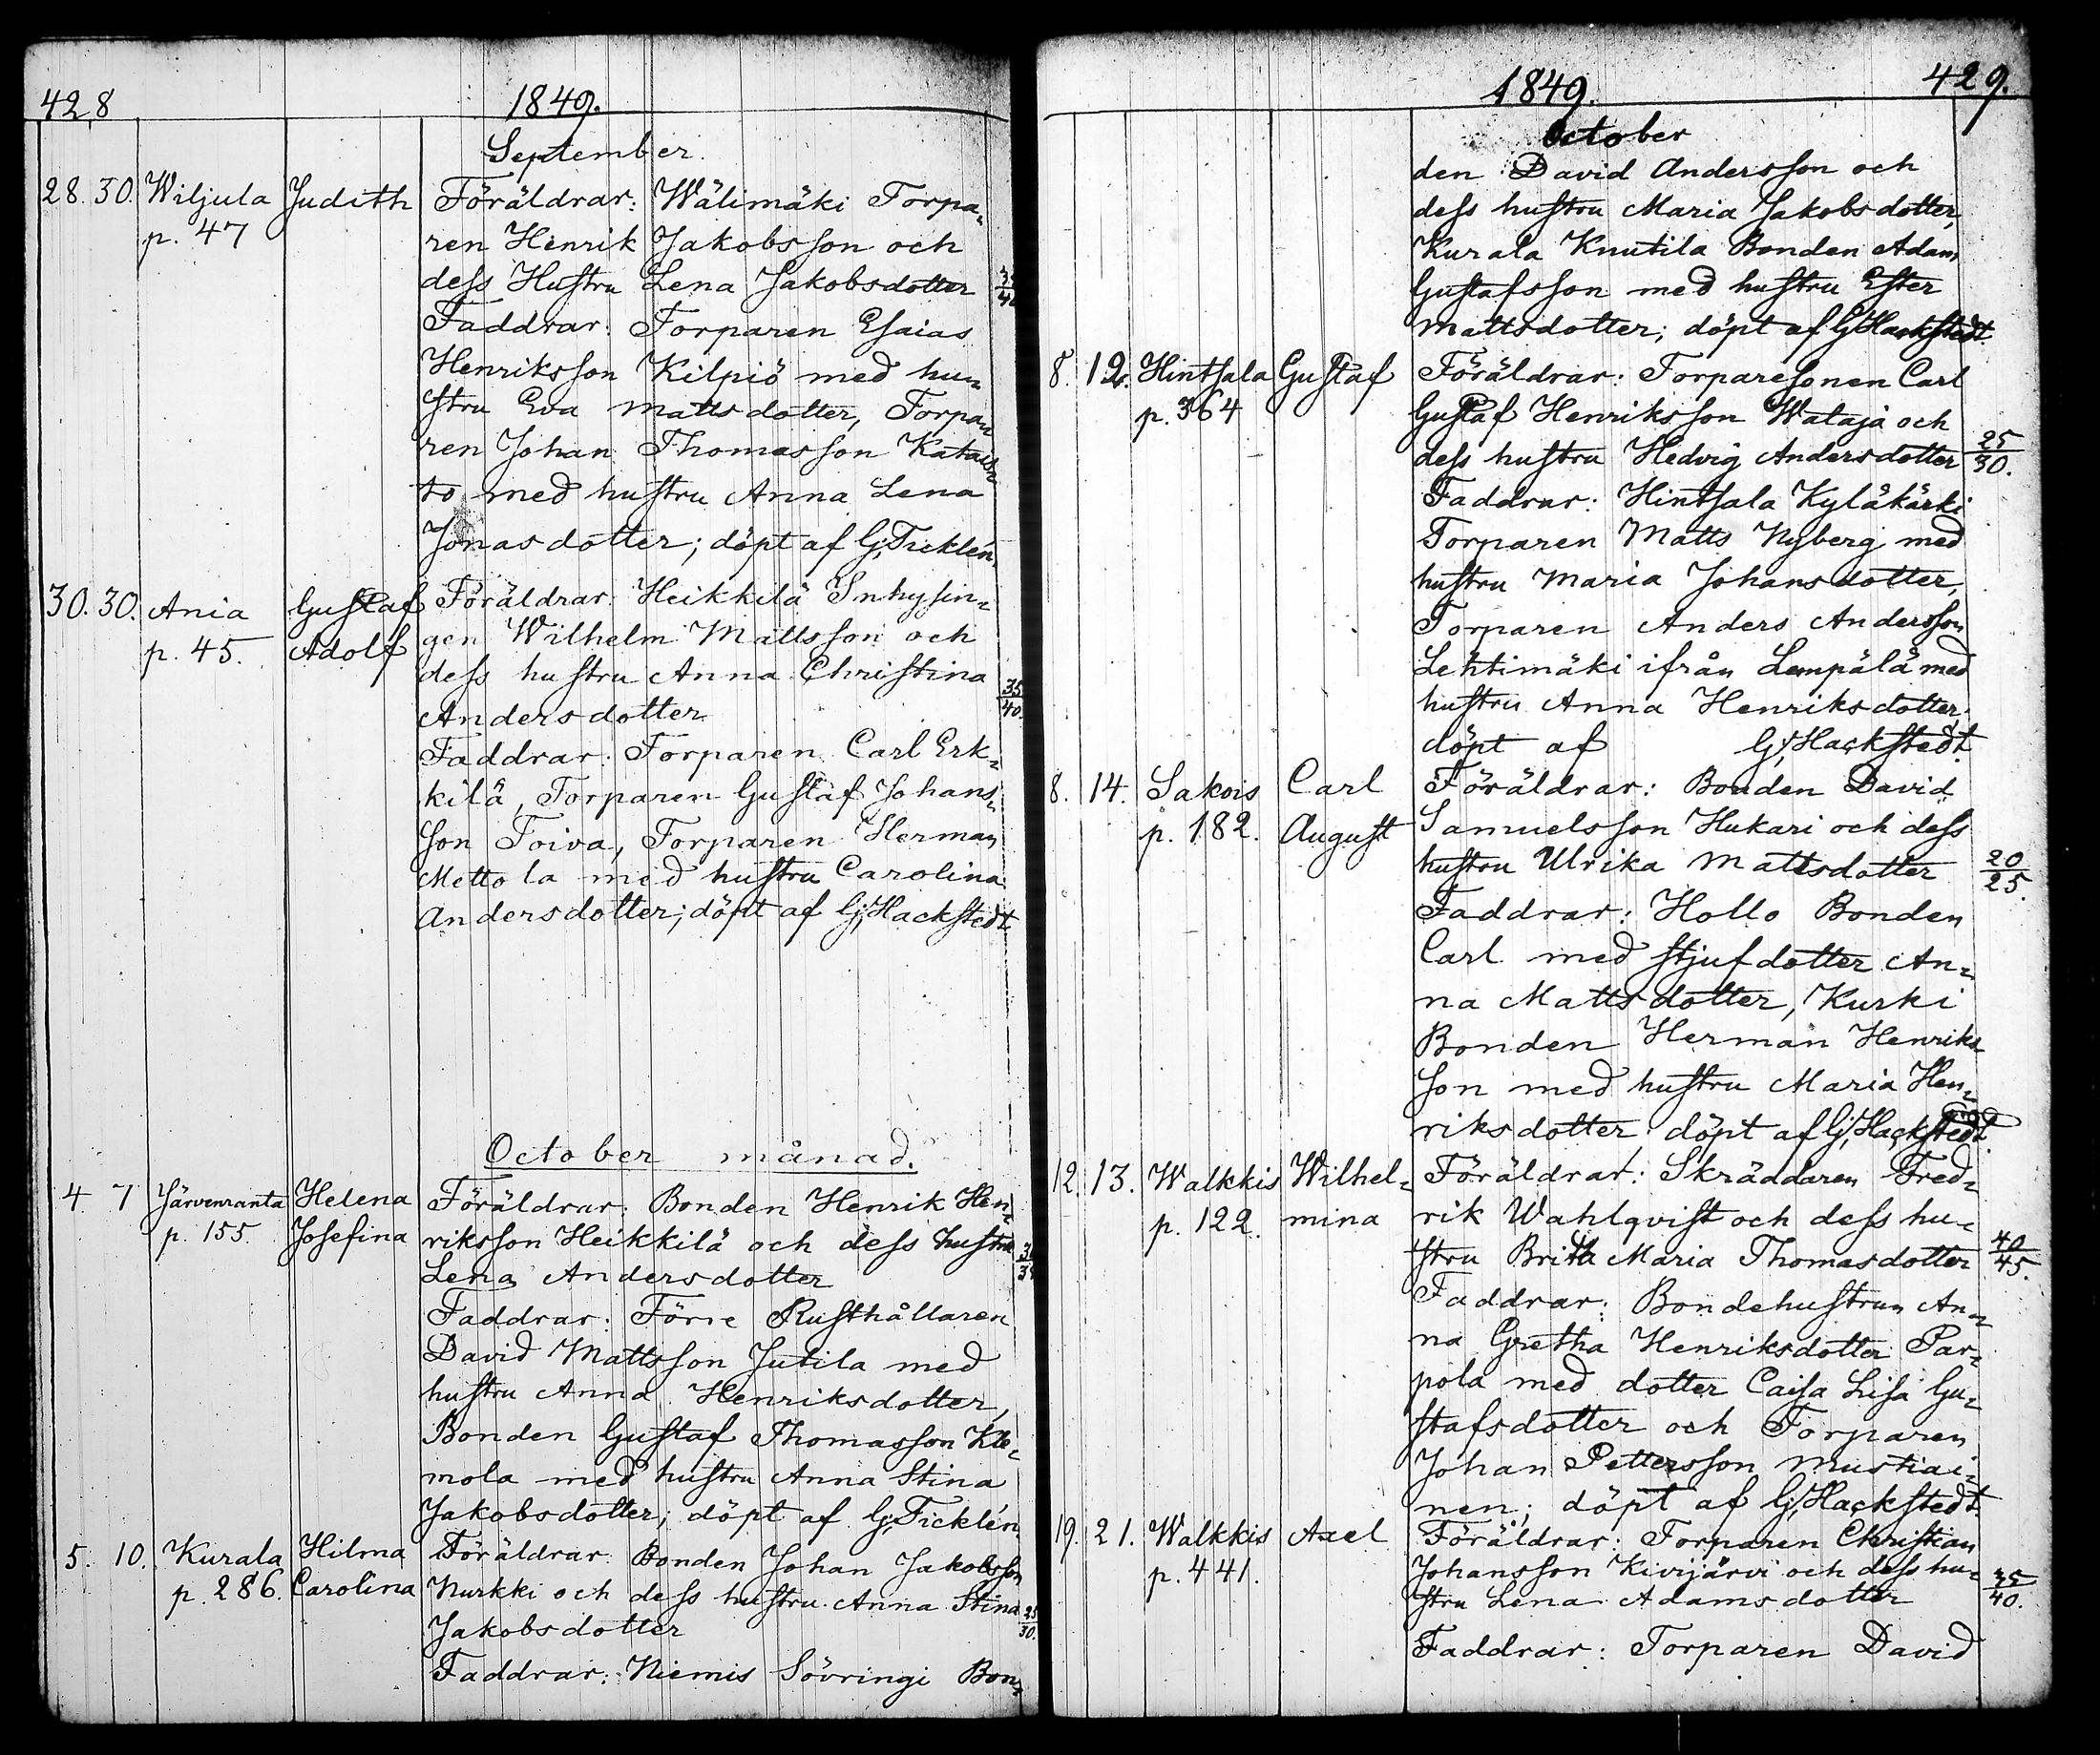 428
1849.
September.
28. 30. Wiljula Judith Föräldrar: Wälimäki Torpa-
p. 47 ren Henrik Jakobsson och
dess Hustru Lena Jakobsdotter
Faddrar: Torparen Esaias
Henriksson Kilpiö med hu-
stru Eva Mattsdotter, Torpa-
ren Johan Thomasson Katais-
to med hustru Anna Lena
Jonasdotter; döpt af Gj. Ticklén.
30. 30. Ania Gustaf Föräldrar: Heikkilä Inhysin-
p. 45. Adolf gen Wilhelm Mattsson och
dess hustru Anna Christina 35/40.
Andersdotter
Faddrar: Torparen Carl Erk-
kilä, Torparen Gustaf Johans-
son Toiva, Torparen Herman
Mettola med hustru Carolina
Andersdotter; döpt af Gj. Hackstedt
October månad.
4. 7 Järvenranta Helena Föräldrar: Bonden Henrik Hen-
p. 155. Josefina riksson Heikkilä och dess hustru
Lena Andersdotter
Faddrar: Förre Rusthållaren
David Mattsson Jutila med
hustru Anna Henriksdotter,
Bonden Gustaf Thomasson Kle-
mola med hustru Anna Stina
Jakobsdotter; döpt af Gj. Ticklén.
5. 10. Kurala Hilma Föräldrar: Bonden Johan Jakobsson
p. 286. Carolina Nurkki och dess hustru Anna Stina 25/30.
Jakobsdotter
Faddrar: Niemis Sövringi Bon-
1849.
429.
October
den David Andersson och
dess hustru Maria Jakobsdotter,
Kurala Knutila Bonden Adam
Gustafsson med hustru Ester
Mattsdotter; döpt af Gj. Hackstedt.
8. 12. Hintsala Gustaf Föräldrar: Torparesonen Carl
p. 364 Gustaf Henriksson Wataja och
dess hustru Hedvig Andersdotter 25/30.
Faddrar: Hintsala Kyläkärki
Torparen Matts Nyberg med
hustru Maria Johansdotter,
Torparen Anders Andersson
Lehtimäki ifrån Lempälä med
hustru Anna Henriksdotter;
döpt af Gj. Hackstedt.
8. 14. Sakois Carl Föräldrar: Bonden David
p. 182. August Samuelsson Hukari och dess
hustru Ulrika Mattsdotter 20/25.
Faddrar: Hollo Bonden
Carl med stjufdotter An-
na Mattsdotter, Kurki
Bonden Herman Henriks-
son med hustru Maria Hen-
riksdotter: döpt af Gj. Hackstedt.
12. 13. Walkkis Wilhel- Föräldrar: Skräddaren Fred-
p. 122. mina rik Wahlqvist och dess hu-
stru Britta Maria Thomasdotter 40/45.
Faddrar: Bondehustrun An-
na Gretha Henriksdotter Par-
pola med dotter Caisa Lisa Gu-
stafsdotter och Torparen
Johan Pettersson Mustiai-
nen; döpt af Gj. Hackstedt.
19. 21. Walkkis Axel Föräldrar: Torparen Christian
p. 441. Johansson Kivijärvi och dess hu-
stru Lena Adamsdotter 35/40.
Faddrar: Torparen David